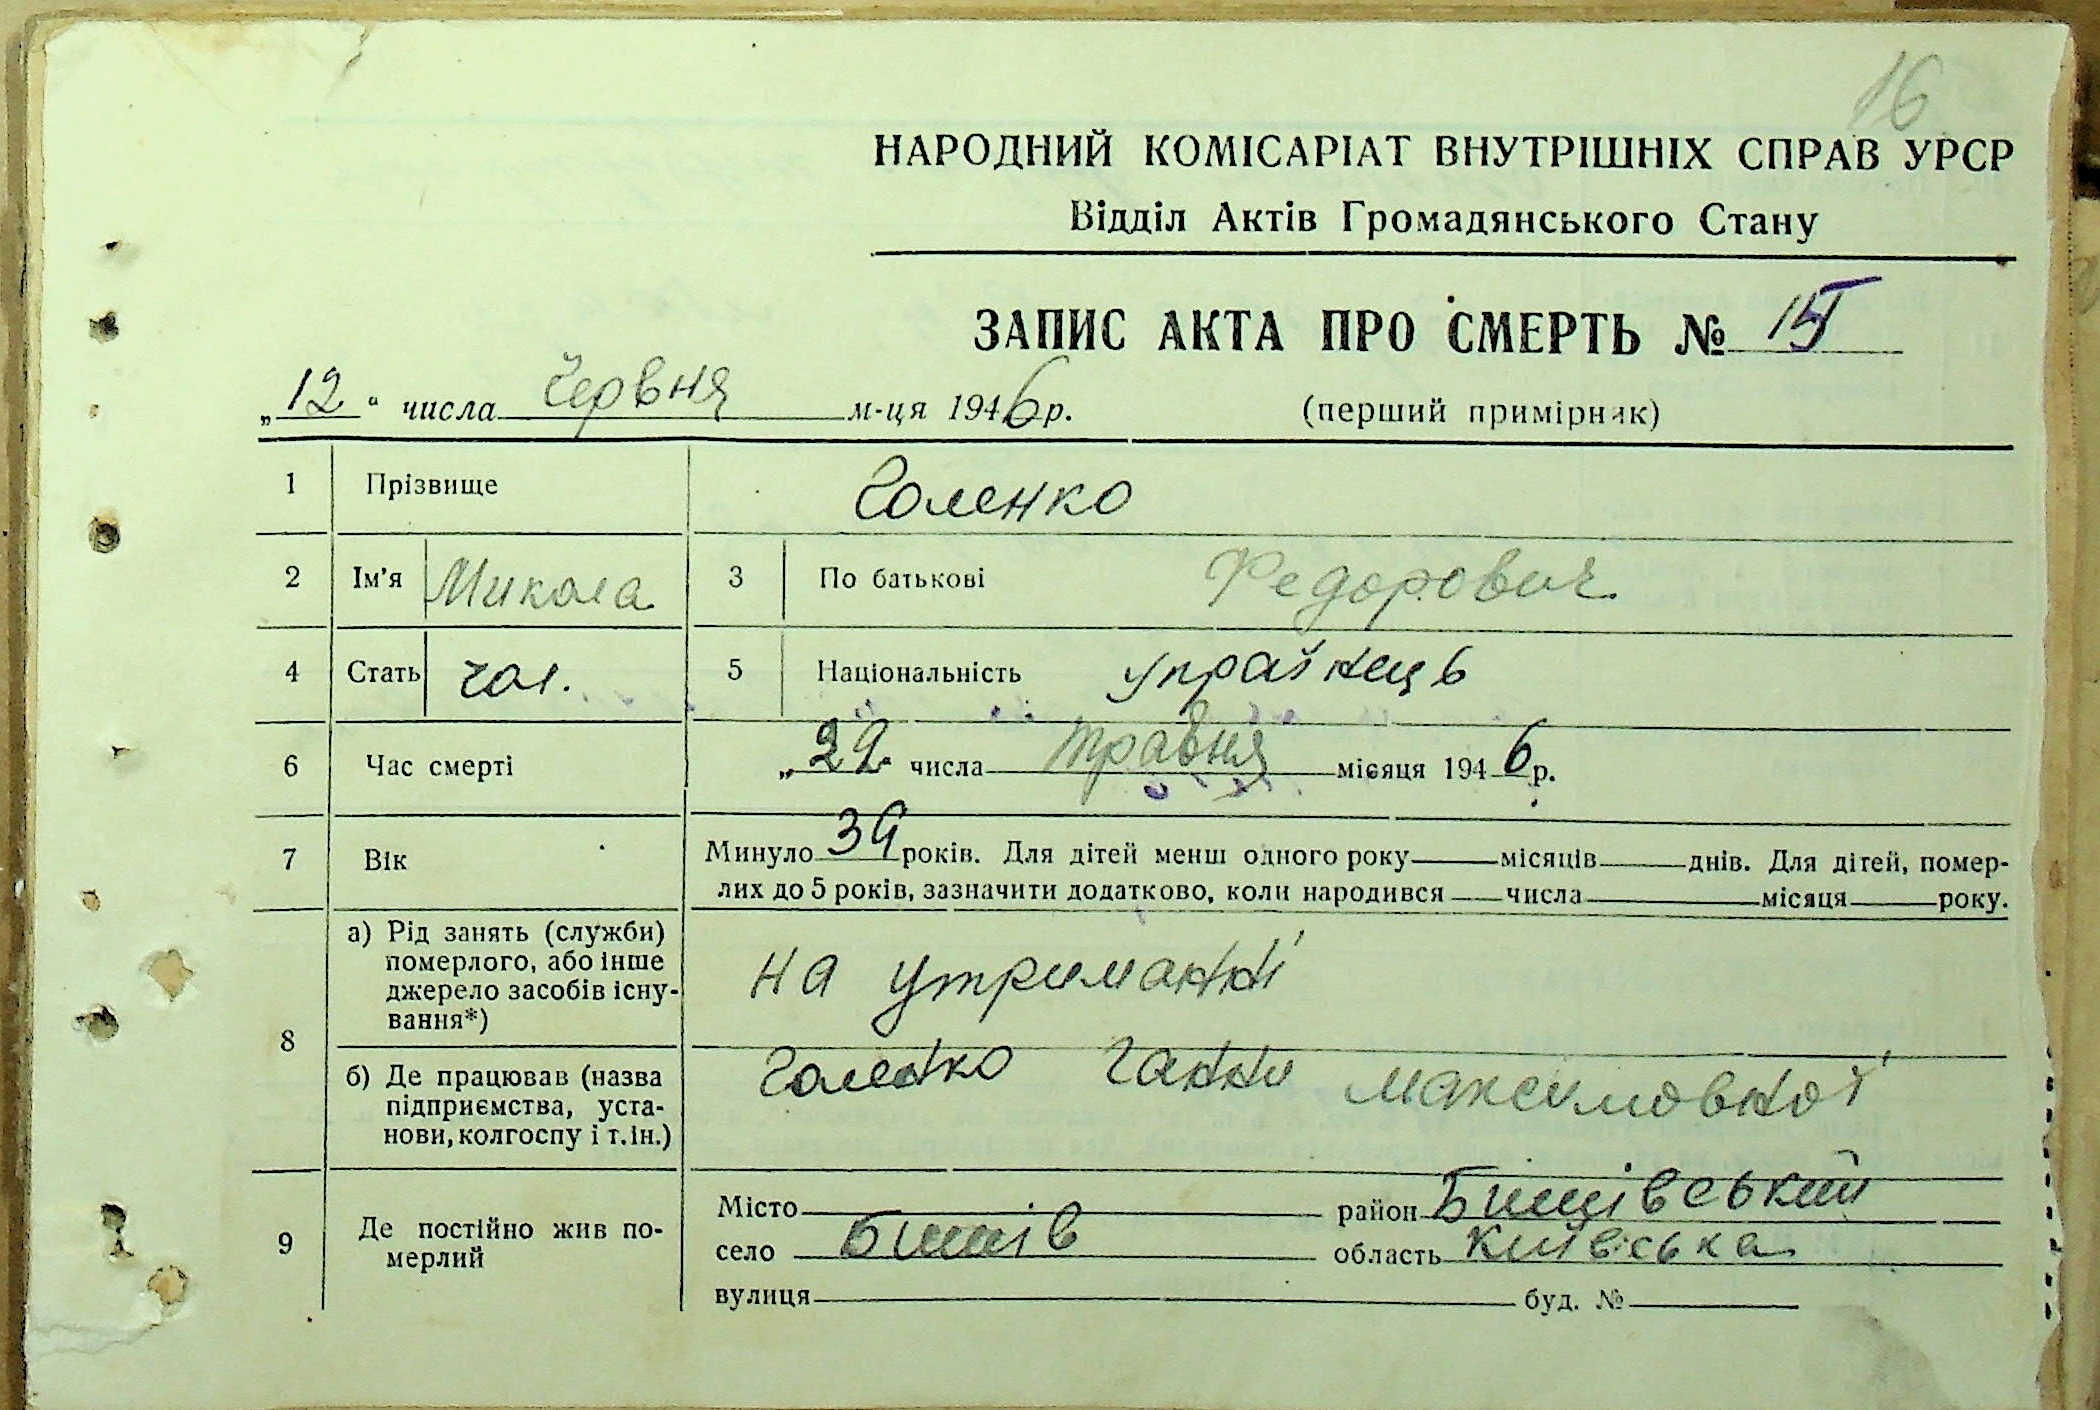 16
НАРОДНИЙ КОМІСАРІАТ ВНУТРІШНІХ СПРАВ УРСР
Відділ Актів Громадянського Стану
ЗАПИС АКТА ПРО СМЕРТЬ № 15
„12“ числа червня м-ця 1946 р.
(перший примірник)
1 Прізвище Голенко
2 Ім'я Микола 3 По батькові Федорович
4 Стать чол. 5 Національність українець
6 Час смерті „22“ числа травня місяця 1946 р.
7 Вік Минуло 39 років. Для дітей менш одного року місяців днів. Для дітей, помер-
лих до 5 років, зазначити додатково, коли народився числа місяця року.
8 а) Рід занять (служби)
померлого, або інше
джерело засобів існу-
вання*)
на утриманні
б) Де працював (назва
підприємства, уста-
нови, колгоспу і т. ін.)
Голенко Ганни Максимовної
9 Де постійно жив по-
мерлий
Місто район Бишівський
село Бишів область Київська
вулиця буд. №